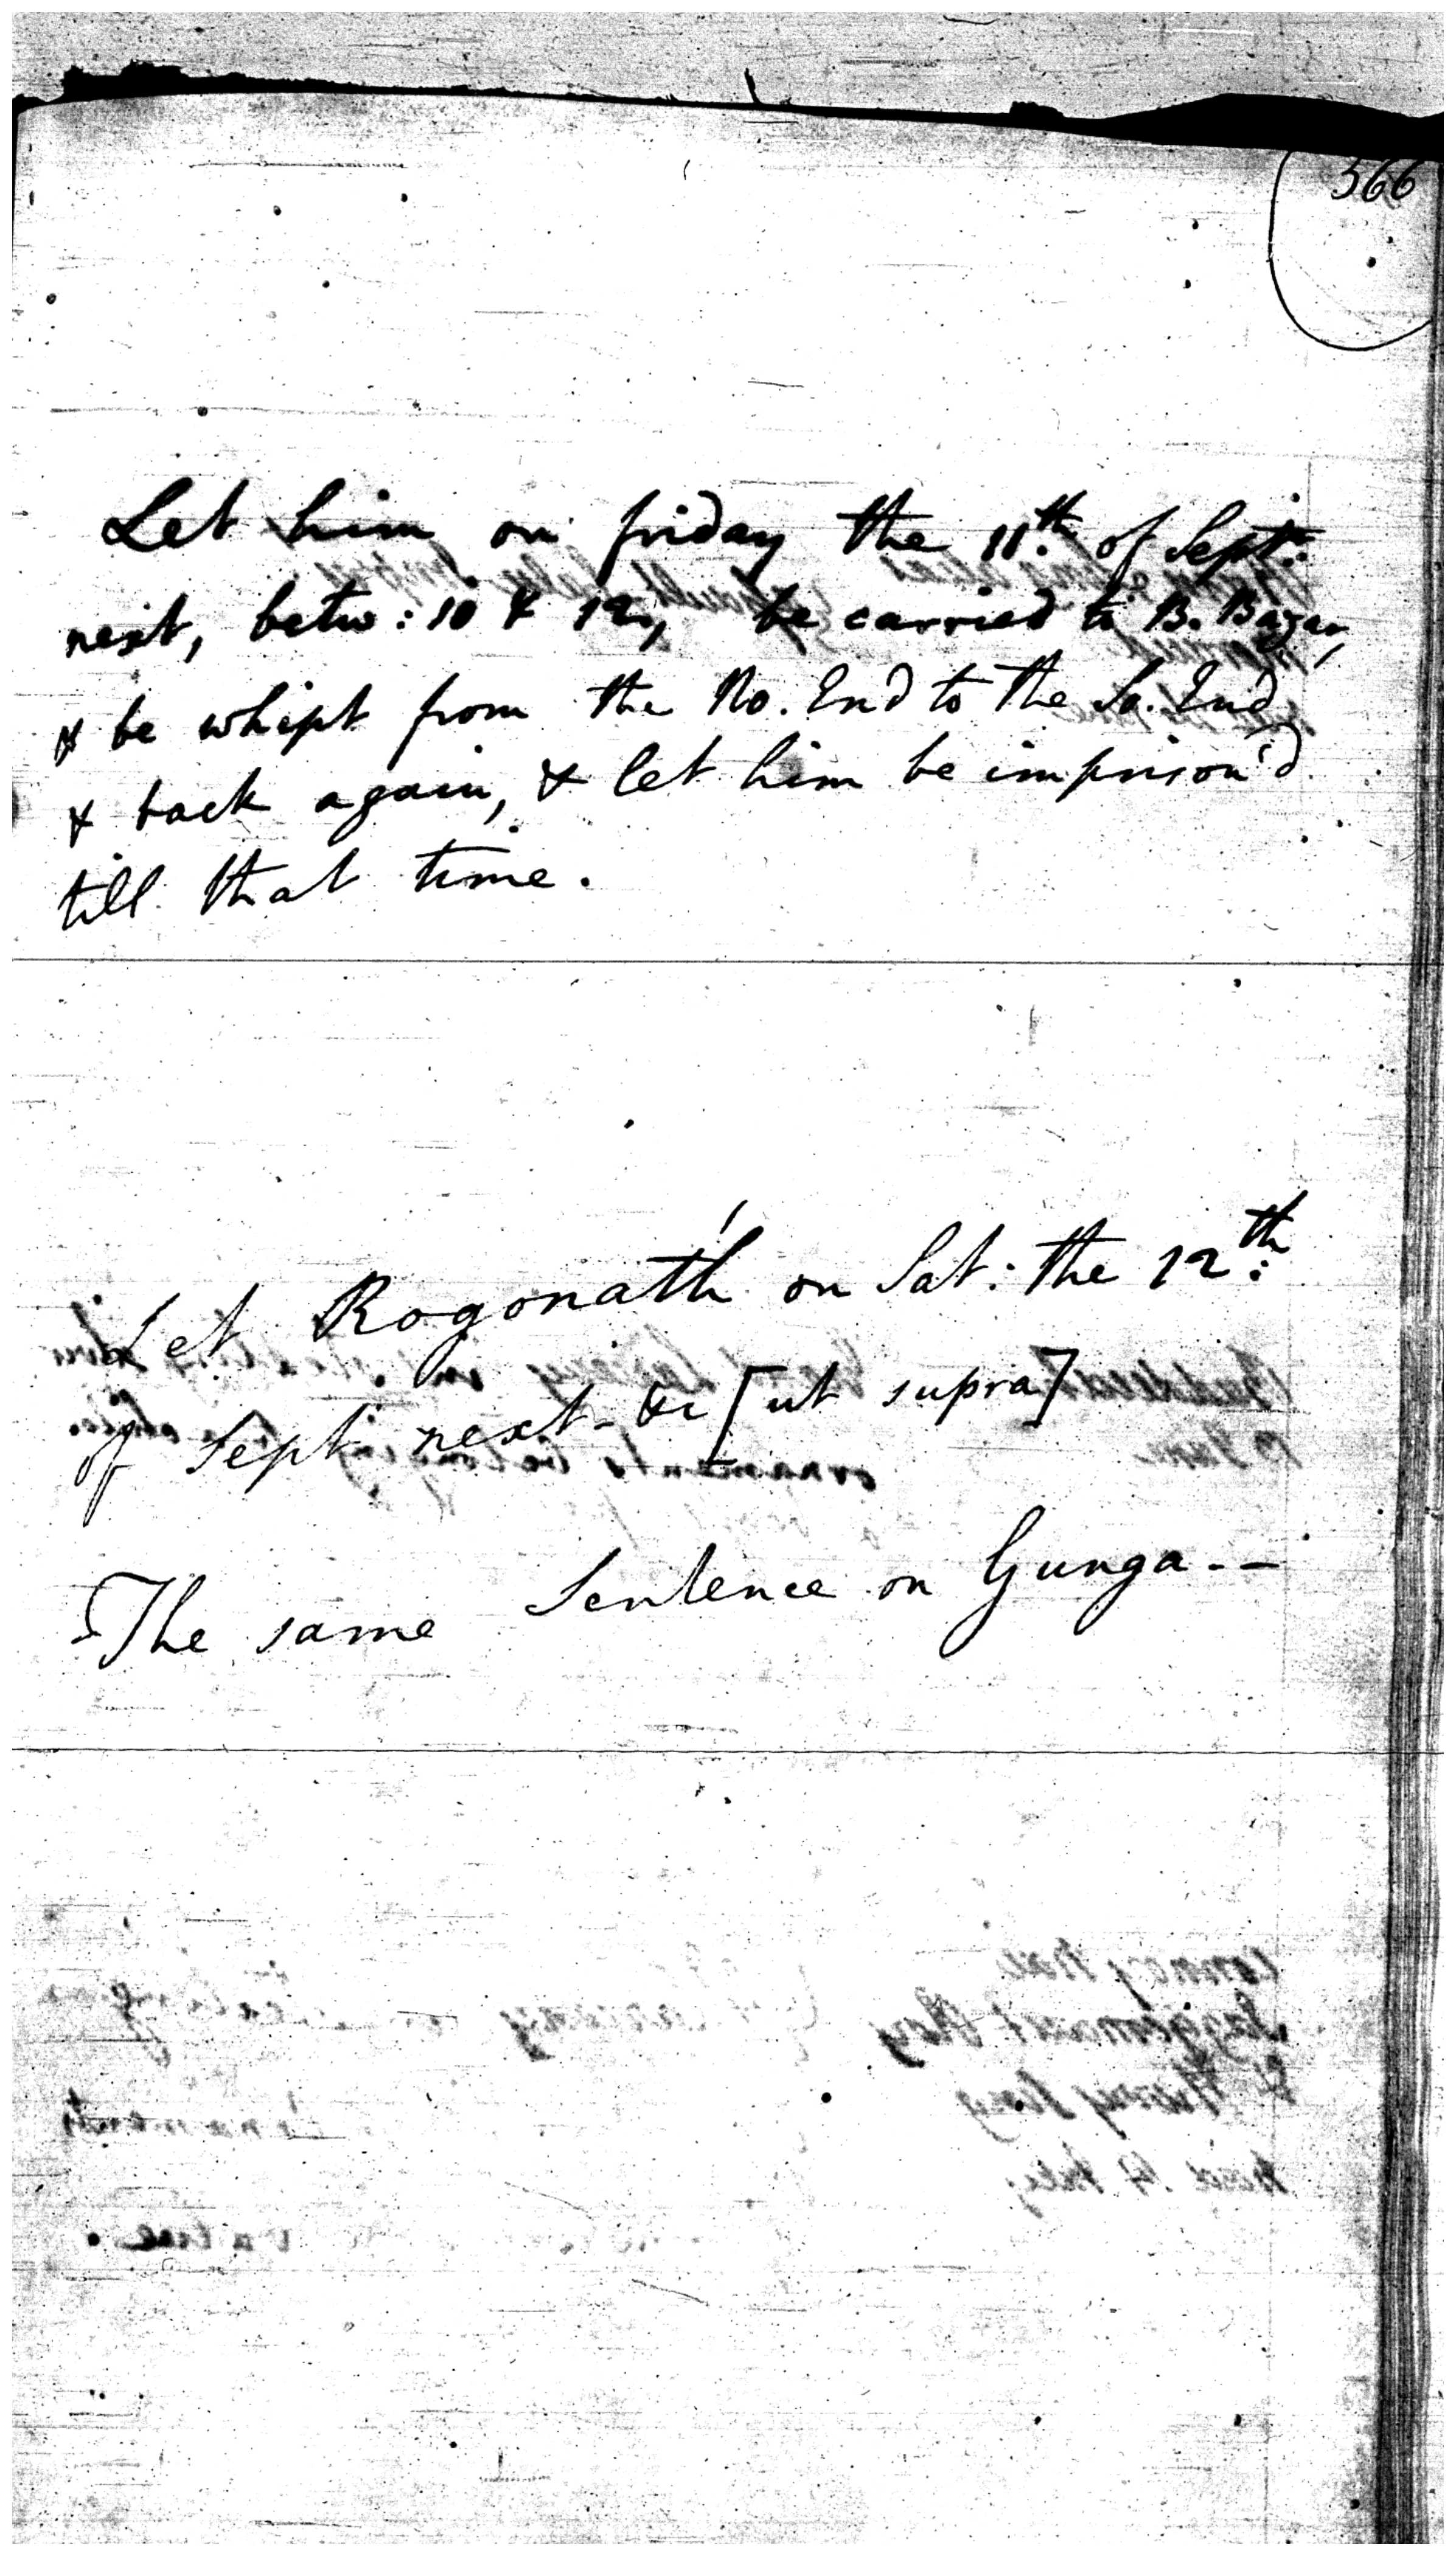 366
Let him on friday the 11th. of Sept:
next, betw: 10 & 12, be carried to B. Bazar,
& be whipt from the No. End to the So. End
& back again, & let him be imprison'd
till that time.
Let Rogonath on Sat: the 12th:
of Sept next &c [ut supra]
The same Sentence on Gunga --